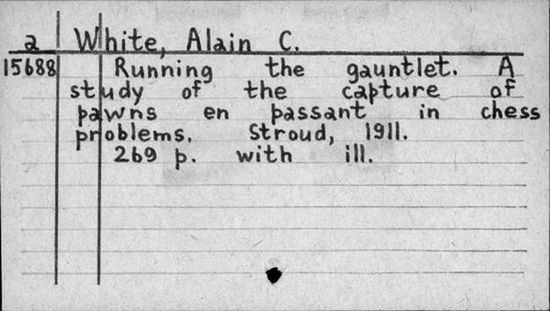 a White, Alain C.
15688 Running the gauntlet. A
study of the capture of
pawns en passant in chess
problems. Stroud, 1911.
269 p. with ill.